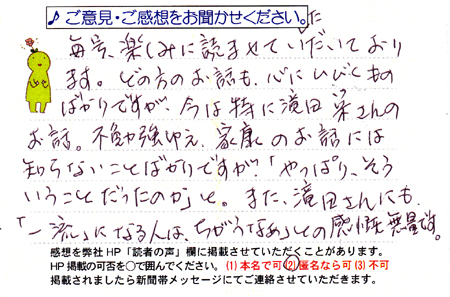 ♪ご意見・ご感想をお聞かせください。
毎号、楽しみに読ませていただいており
ます。どの方のお話も、心にひびくもの
ばかりですが、今は特に滝田 栄さんの
お話。不勉強ゆえ、家康のお話には
知らないことばかりですが、「やっぱり、そう
いうことだったのか」と。また、滝田さんにも、
「一流」になる人は、ちがうなぁ」との感慨無量です。
感想を弊社HP「読者の声」欄に掲載させていただくことがあります。
HP掲載の可否を○で囲んでください。(1)本名で可 (2)匿名なら可 (3)不可
掲載されましたら新聞帯メッセージにてご連絡させていただきます。